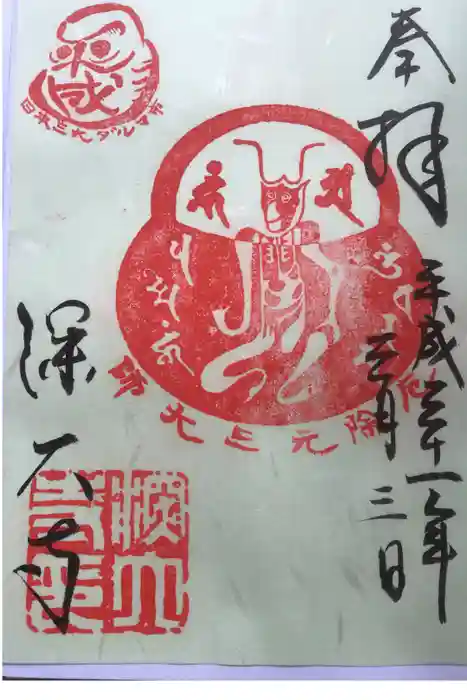 奉拝
平成三十一年
三月三日
日本三大ダルマ市
厄除元三大師
深大寺